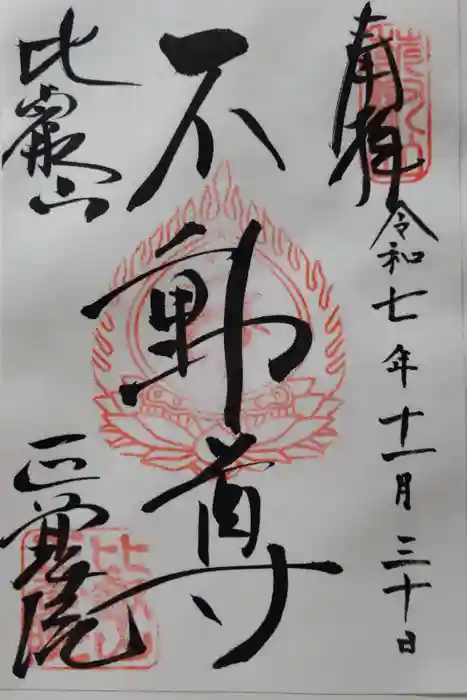 奉拝
令和七年十一月三十日
不動尊
比叡山
正覚院